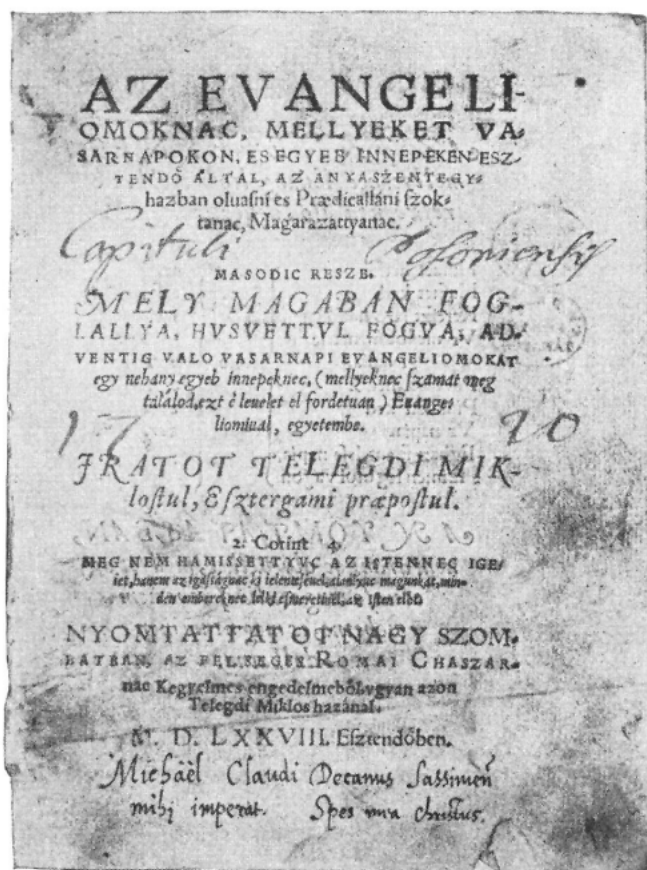 AZ EVANGELI-
OMOKNAC, MELLYEKET VA-
SARNAPOKON, ES EGYEB INNEPEKEN ESZ-
TENDÖ ALTAL, AZ ANYASZENTEGY-
hazban oluaſni es Prædicallani ſzok-
tanac, Magarazattyanac.
Capituli Poſonienſis
MASODIC RESZE.
MELY MAGABAN FOG-
LALLYA, HVSVETTVL FOGVA, AD-
VENTIG VALO VASARNAPI EVANGELIOMOKAT
egy nehany egyeb innepeknec, (mellyeknec ſzamat meg
talalod, ezt è leuelet el fordetuan) Euange-
liomiual, egyetembe.
17 20
IRATOT TELEGDI MIK-
loſtul, Eſztergami præpoſtul.
2. Corint 4.
MEG NEM HAMISSETTYVC AZ ISTENNEC IGE-
iet, hanem az igaſsagnac ki ielenteſeuel, magunkat, min-
den embereknec lelki eſmeretinel, az Iſten elöt.
NYOMTATTATOT NAGY SZOM-
BATBAN, AZ FELSEGES ROMAI CHASZAR-
nac Kegyelmes engedelmeböl, vgyan azon
Telegdi Miklos hazanal.
M. D. LXXVIII. Eſztendöben.
Michaël Claudi Decanus Saſſinien̄
mihi imperat. Spes mea Chriſtus.